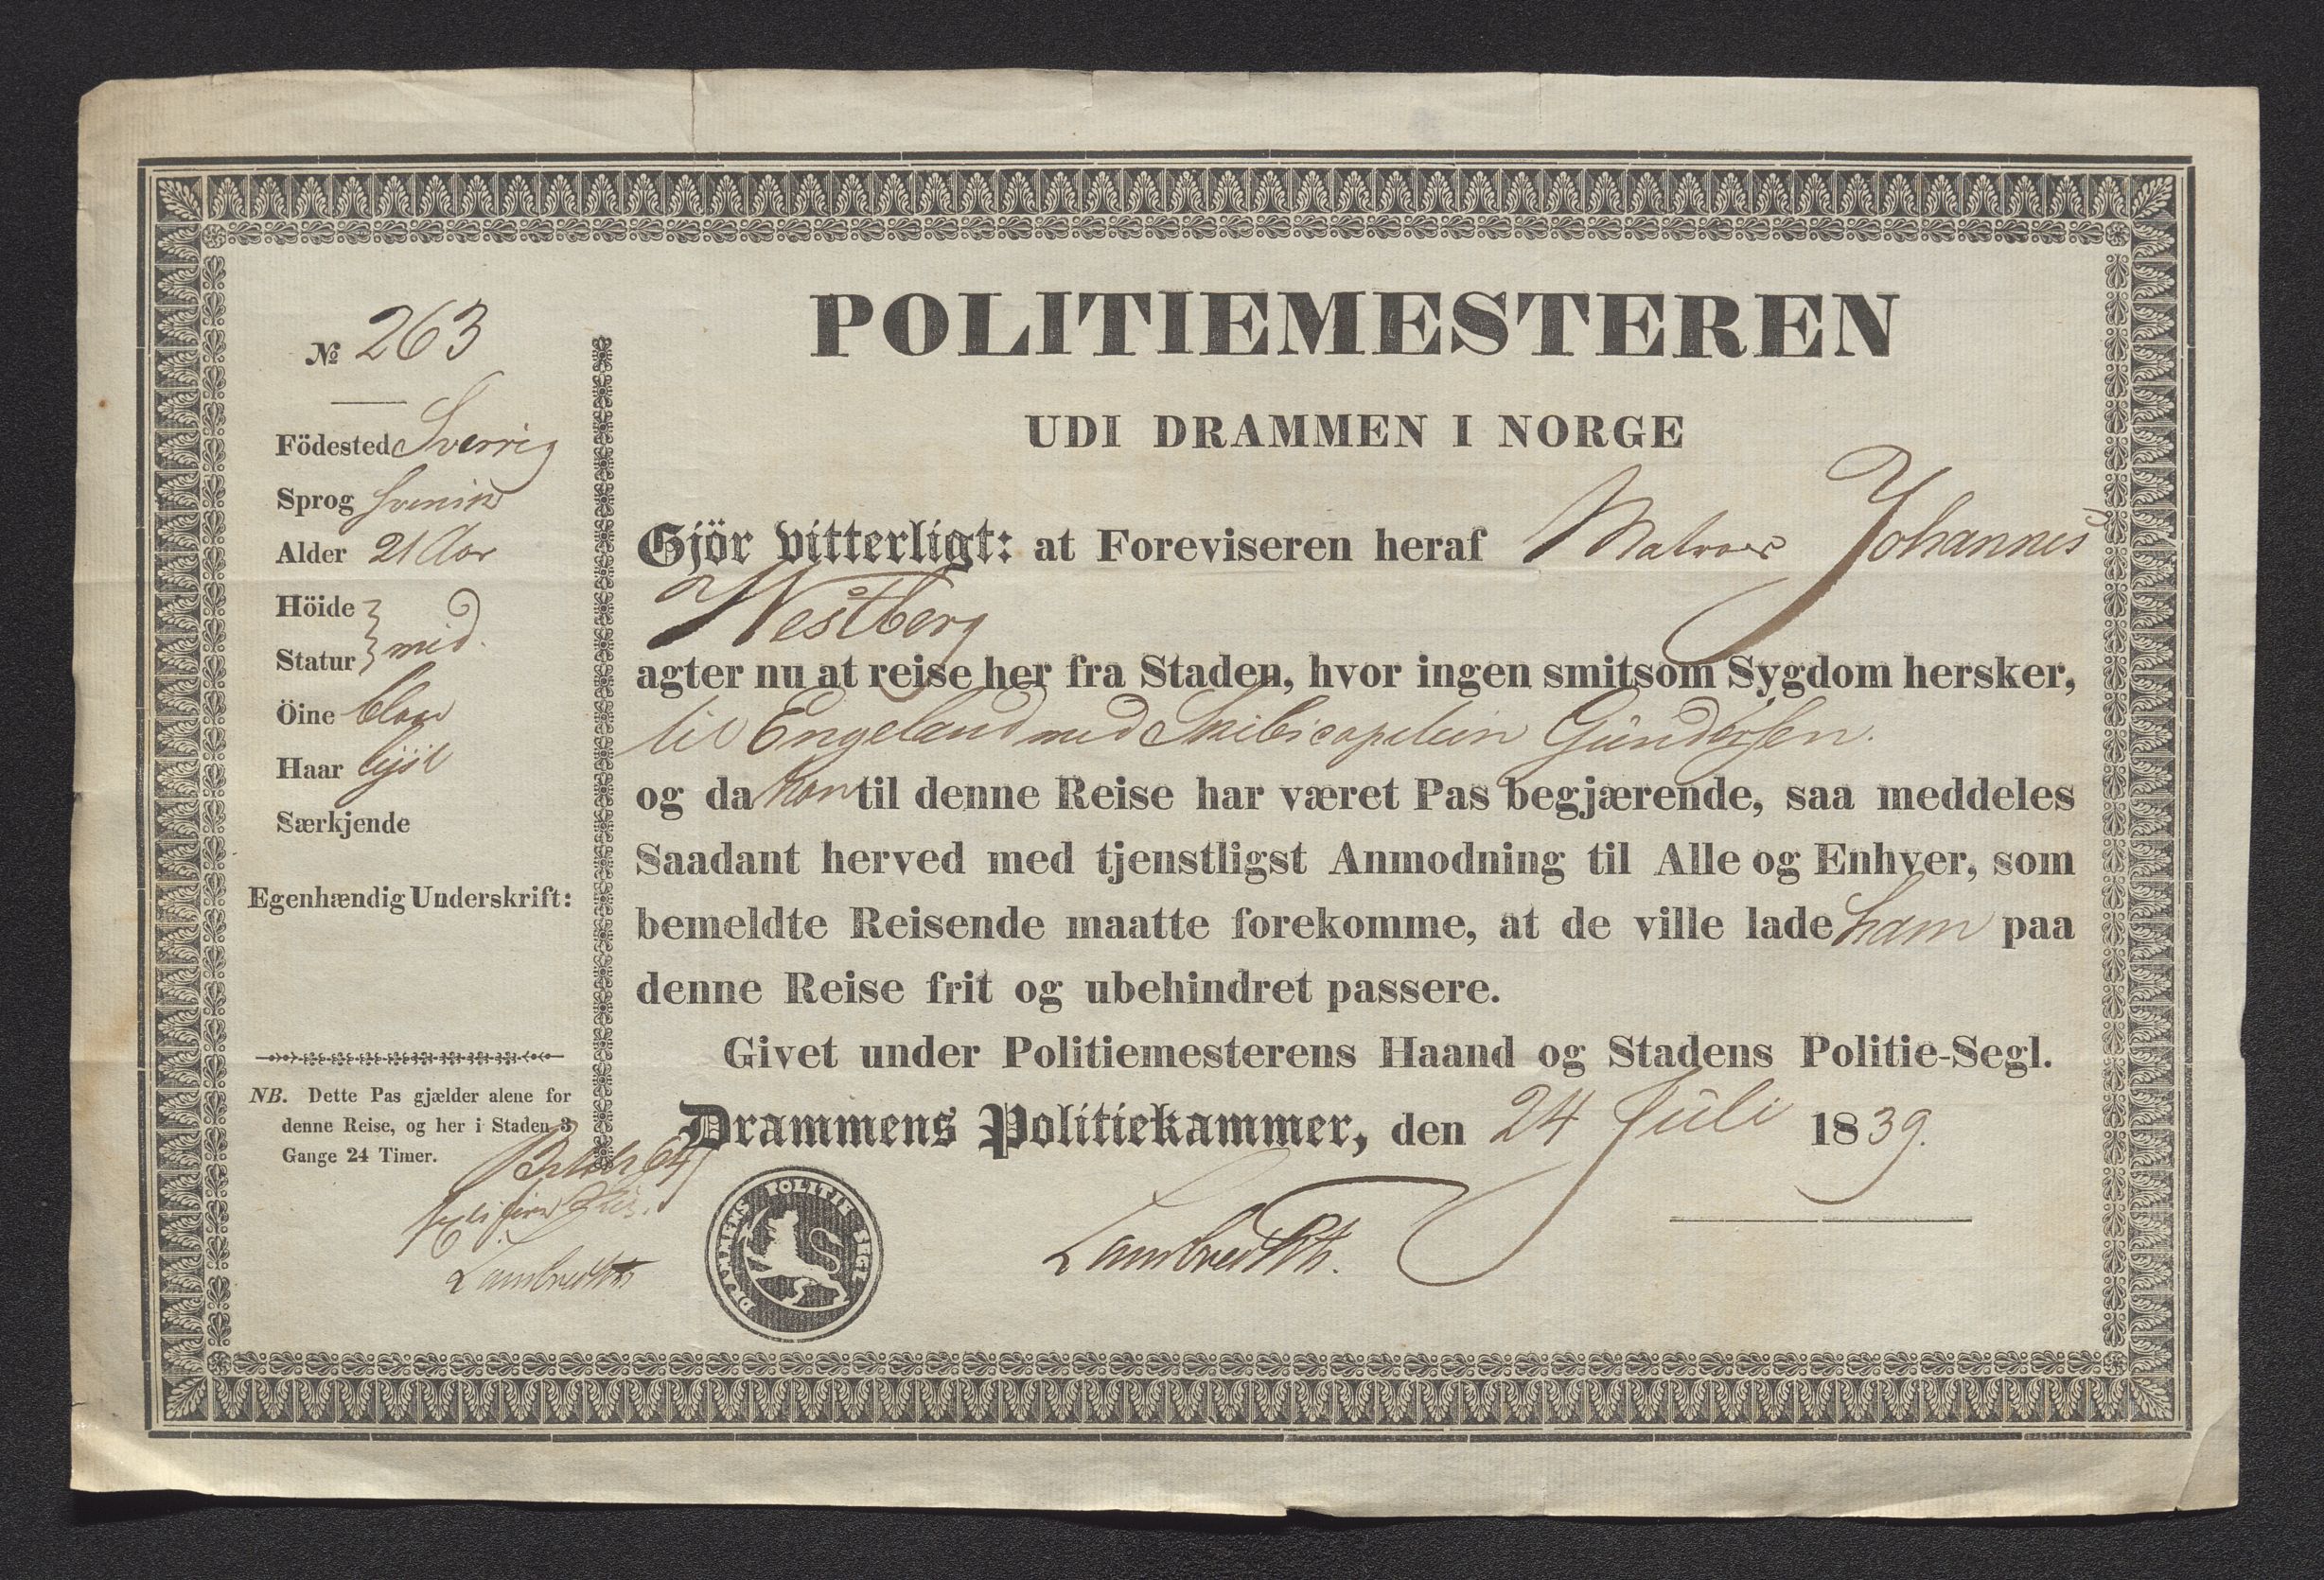 № 263
Födested Sverrig
Sprog Svensk
Alder 21 Aar
Höide
Statur } mid.
Öine blaa
Haar lyst
Særkjende
Egenhændig Underskrift:
NB. Dette Pas gjælder alene for
denne Reise, og her i Staden 3
Gange 24 Timer.
Betalt 64
Lambrechts
POLITIEMESTEREN
UDI DRAMMEN I NORGE
Gjör vitterligt: at Foreviseren heraf Matros Johannes
Westberg
agter nu at reise her fra Staden, hvor ingen smitsom Sygdom hersker,
til Engeland med Skibscaptein Gundersen.
og da han til denne Reise har været Pas begjærende, saa meddeles
Saadant herved med tjenstligst Anmodning til Alle og Enhver, som
bemeldte Reisende maatte forekomme, at de ville lade ham paa
denne Reise frit og ubehindret passere.
Givet under Politiemesterens Haand og Stadens Politie-Segl.
Drammens Politiekammer, den 24 Juli 1839.
DRAMMENS POLITIE SEGL
Lambrechts.